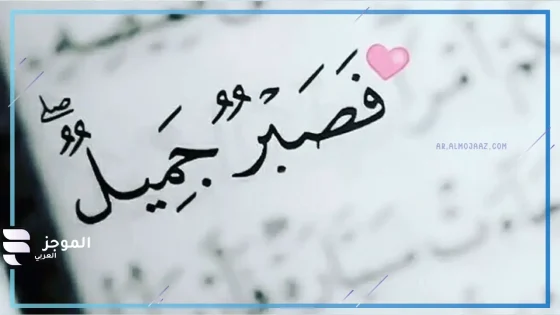 فَصَبْرٌ جَمِيلٌ ۖ
AR.ALMOJAAZ.COM
الموجز
العربي